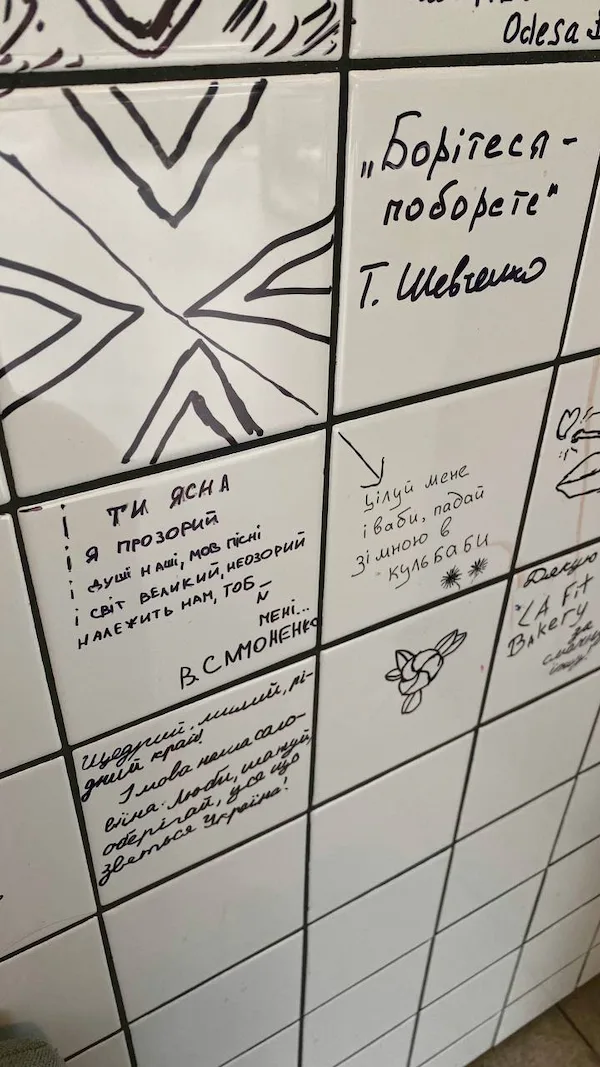 Odesa
„Борітеся -
поборете"
Т. Шевченко
І ТИ ЯСНА
І Я ПРОЗОРИЙ
І душі наші, мов пісні
І світ великий, неозорий
належить нам, тобі
мені...
В. СИМОНЕНКО
цілуй мене
і ваби, падай
зі мною в
кульбаби
Щедрий, милий, рі-
дний край!
І мова наша соло-
віїна. Люби, шануй,
оберігай, усе що
зветься Україна!
Дякую
"LA Fit
BAKERY
за
смачну
їжу!